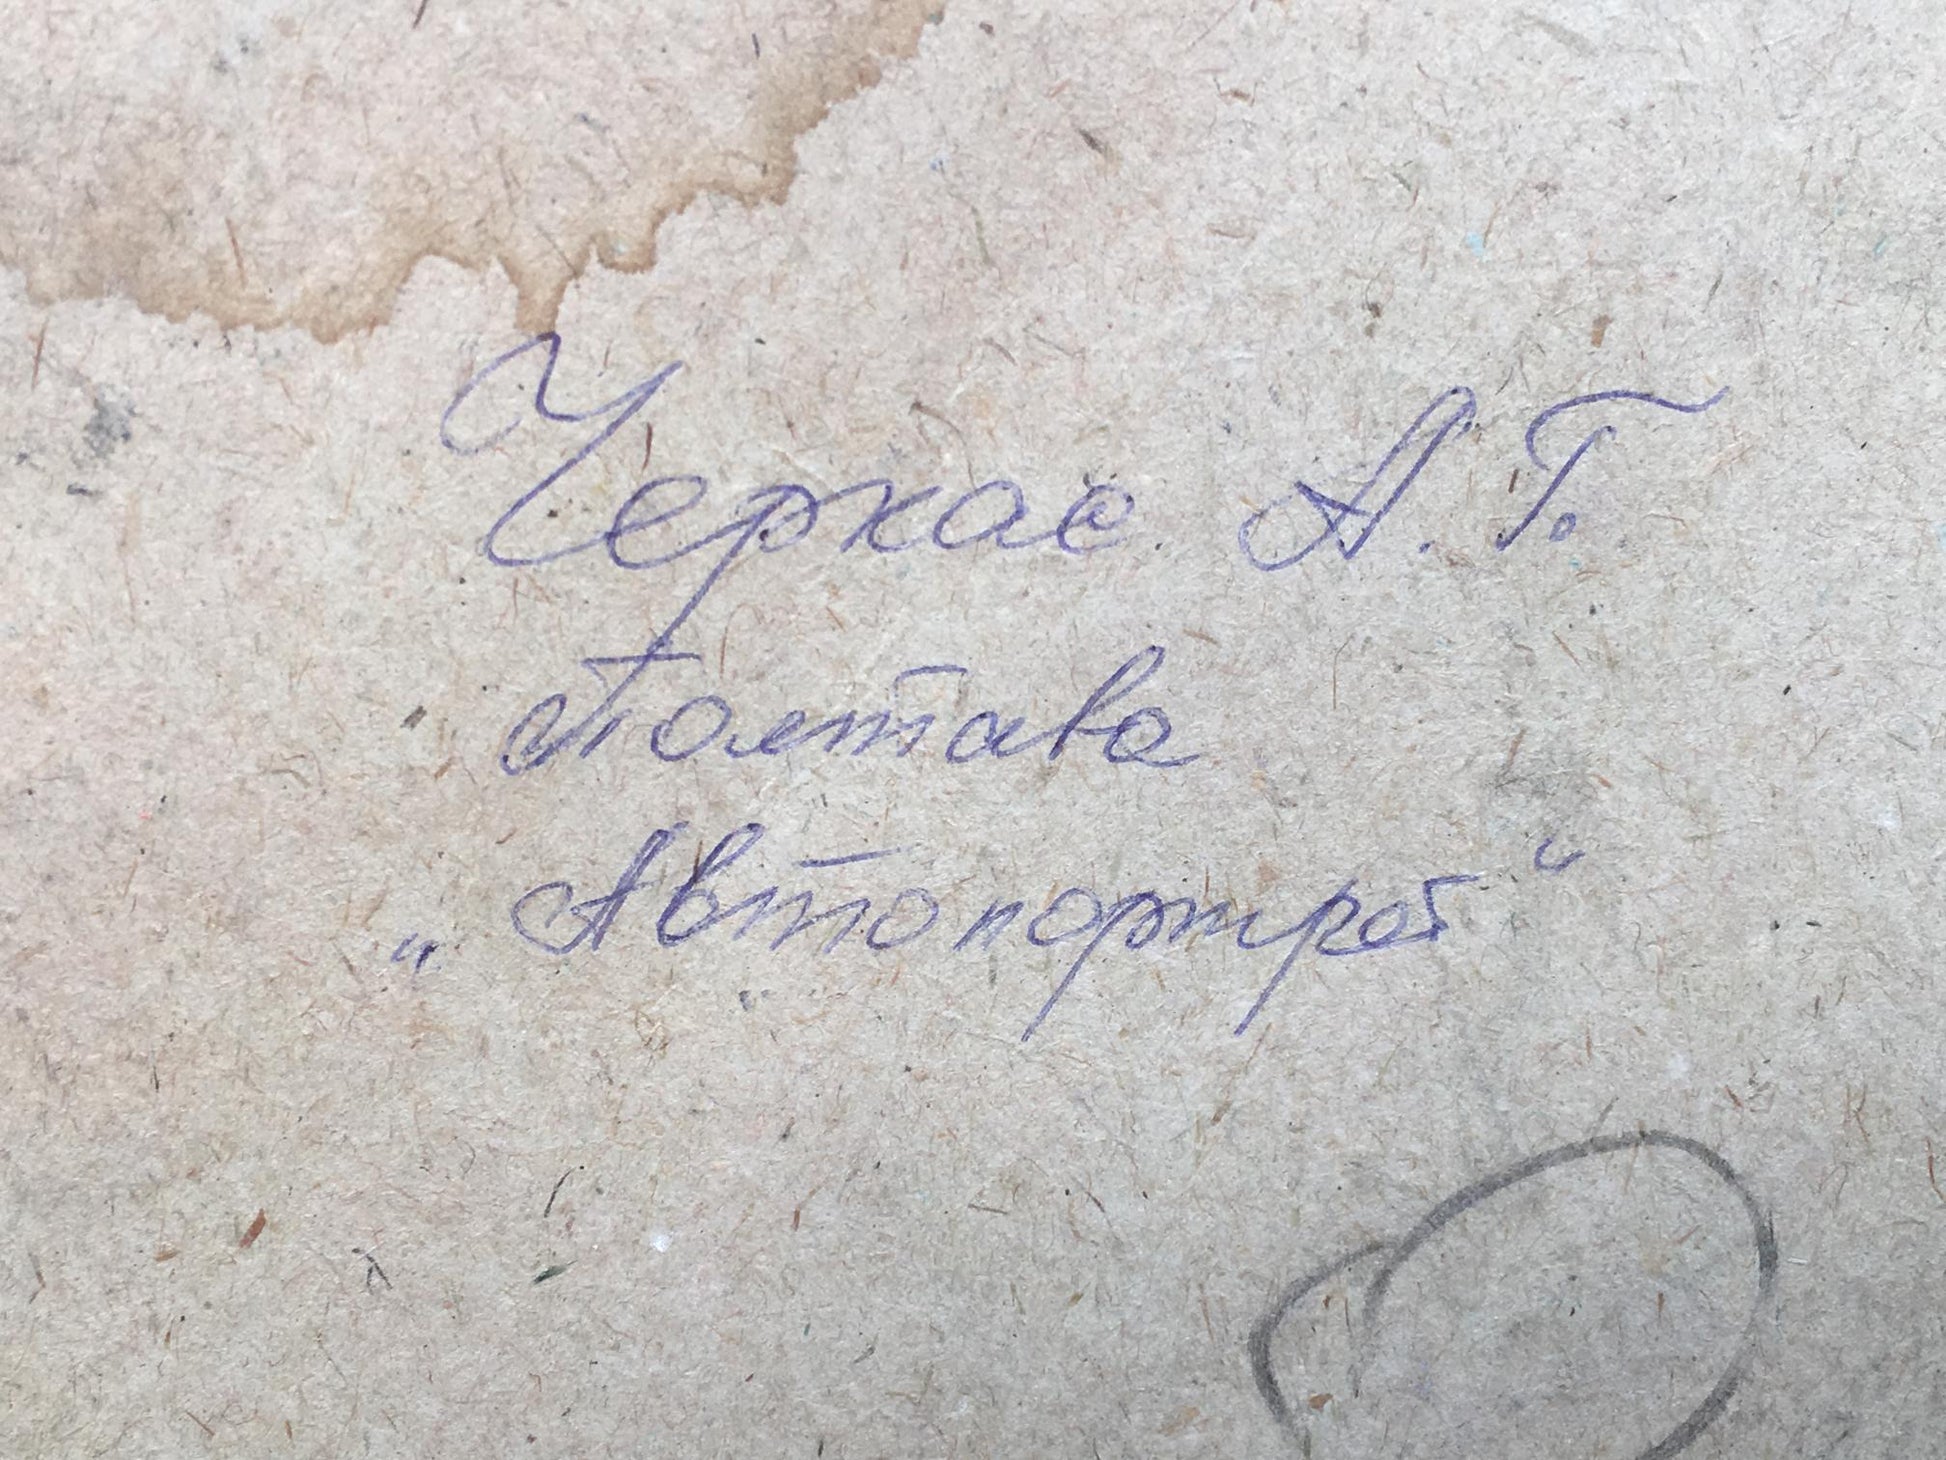 Черкас А. Г.
Полтава
„Автопортрет“